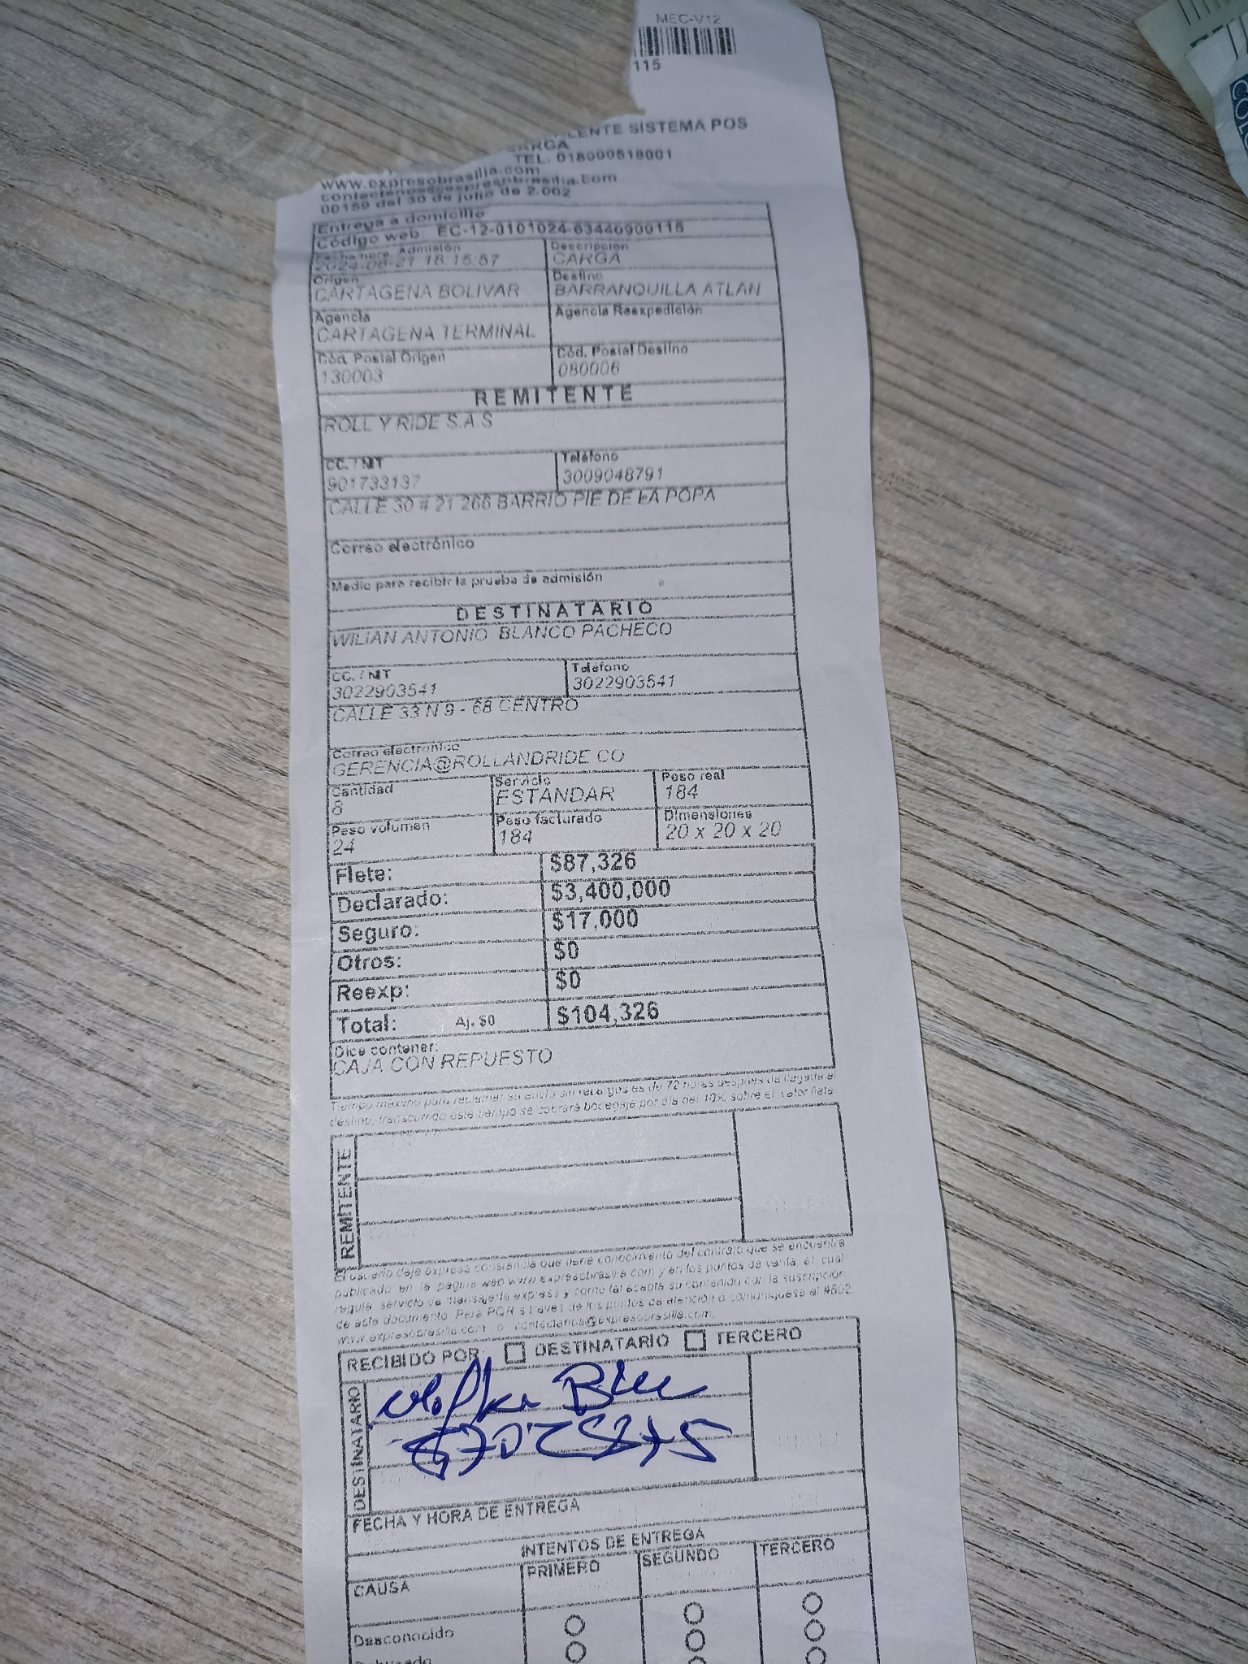 MEC-V12
115
LENTE SISTEMA POS
ARGA
TEL. 018000518001
www.expresobrasilia.com
contactenos@expresobrasilia.com
00159 del 30 de julio de 2.002
Entrega a domicilio
Código web EC-12-0101024-63440900115
Fecha hora Admisión Descripción
2024-06-21 16:15:57 CARGA
Origen Destino
CARTAGENA BOLIVAR BARRANQUILLA ATLAN
Agencia Agencia Reexpedición
CARTAGENA TERMINAL
Cód. Postal Origen Cód. Postal Destino
130003 080006
REMITENTE
ROLL Y RIDE S.A.S
CC. / NIT Teléfono
901733137 3009048791
CALLE 30 # 21 266 BARRIO PIE DE LA POPA
Correo electrónico
Medio para recibir la prueba de admisión
DESTINATARIO
WILIAN ANTONIO BLANCO PACHECO
CC. / NIT Teléfono
3022903541 3022903541
CALLE 33 N 9 - 68 CENTRO
Correo electrónico
GERENCIA@ROLLANDRIDE.CO
Cantidad Servicio Peso real
8 ESTANDAR 184
Peso volumen Peso facturado Dimensiones
24 184 20 x 20 x 20
Flete: $87,326
Declarado: $3,400,000
Seguro: $17,000
Otros: $0
Reexp: $0
Total: Aj. $0 $104,326
Dice contener:
CAJA CON REPUESTO
Tiempo máximo para reclamar su envío sin recargos es de 72 horas después de llegada a
destino, transcurrido este tiempo se cobrará bodegaje por día del 10% sobre el valor flete
REMITENTE
El usuario deja expresa constancia que tiene conocimiento del contrato que se encuentra
publicado en la página web www.expresobrasilia.com y en los puntos de venta, el cual
regula servicio de mensajería expresa y como tal acepta su contenido con la suscripción
de este documento. Para PQR a través de los puntos de atención o comuníquese al #602
www.expresobrasilia.com o contactenos@expresobrasilia.com
RECIBIDO POR: DESTINATARIO TERCERO
DESTINATARIO
FECHA Y HORA DE ENTREGA
INTENTOS DE ENTREGA
CAUSA PRIMERO SEGUNDO TERCERO
Desconocido